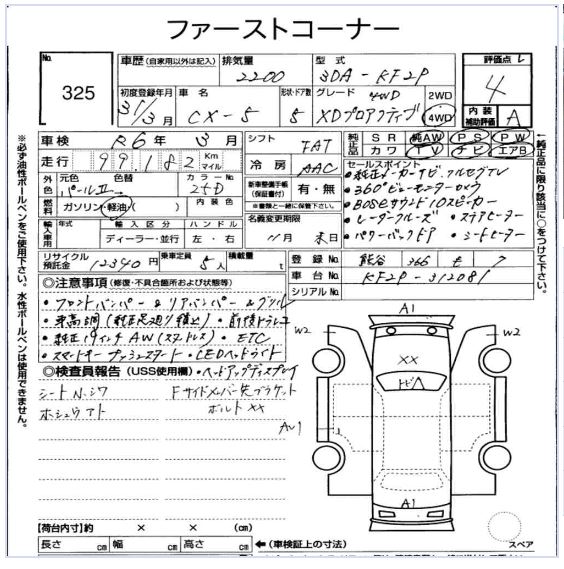 ファーストコーナー
No. 325
車歴 (自家用以外は記入)
排気量 2200
型式 3DA-KF2P
評価点 4
初度登録年月 31/3月
車名 CX-5
形状・ドア数 5
グレード 4WD XDプロアクティブ
2WD
4WD
内装補助評価 A
※必ず油性ボールペンをご使用下さい。水性ボールペンは使用できません。
車検 R6年 3月
シフト FAT
純正品 SR 純AW PS PW
カワ TV ナビ エアB
走行 99,182 Km マイル
冷房 AAC
セールスポイント
・純正メーカーナビ.フルセグTV
・360°ビューモニターカメラ
・BOSEサウンド10スピーカー
・レーダークルーズ ・ステアヒーター
・パワーバックドア ・シートヒーター
外色 元色 パールⅡ 色替
カラーNo. 25D
新車整備手帳(保証書付) 有・無
※書類と一緒に保管して下さい。
燃料 ガソリン・軽油・( )
内装色
名義変更期限 11月 末日
輸入車用 年式 輸入区分 ハンドル
ディーラー・並行 左・右
↑純正品に限り該当に○をつけて下さい。
リサイクル預託金 12340円
乗車定員 5人
積載量 t
登録No. 熊谷 366 も 7
車台No. KF2P-312081
シリアルNo.
◎注意事項 (修復・不具合箇所および状態等)
・フロントバンパー & リアバンパー & グリル
・車高調 (純正足廻り積上) ・前後ドラレコ
・純正19インチAW (スタッドレス) ・ETC
・スマートキー プッシュスタート ・LEDヘッドライト
◎検査員報告 (USS使用欄) ・ヘッドアップディスプレイ
シートN.シワ
ホシュウアト
Fサイドメンバー先ブラケット
ボルト××
A1
W2
W2
××
トビA
A1
【荷台内寸】約 × × (cm)
長さ cm 幅 cm 高さ cm
←(車検証上の寸法)
スペア